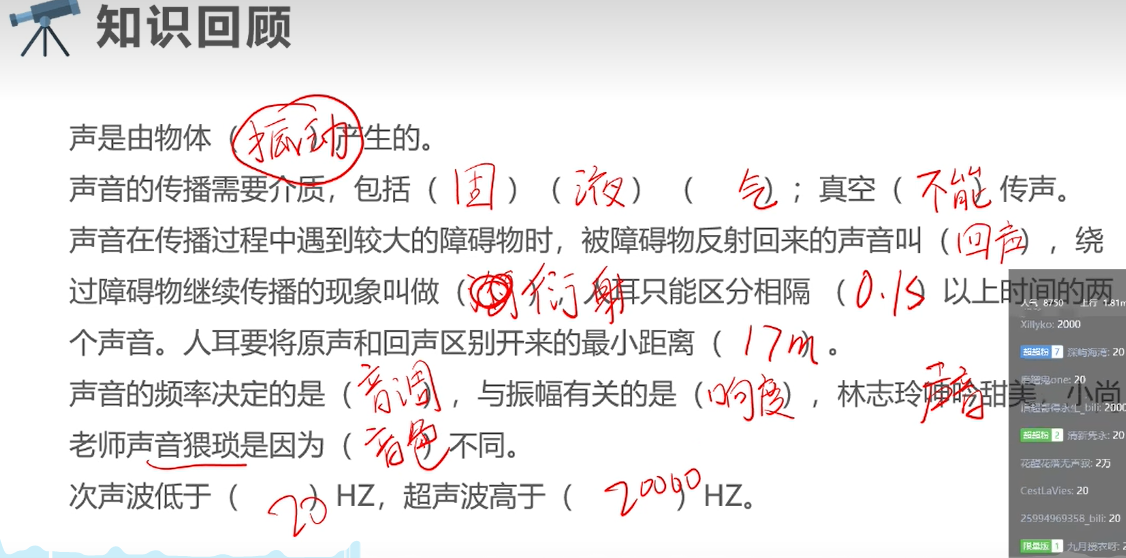 知识回顾
声是由物体（振动）产生的。
声音的传播需要介质，包括（固）（液）（气）；真空（不能）传声。
声音在传播过程中遇到较大的障碍物时，被障碍物反射回来的声音叫（回声），绕
过障碍物继续传播的现象叫做（衍射）耳只能区分相隔（0.1s）以上时间的两
个声音。人耳要将原声和回声区别开来的最小距离（17m）。
声音的频率决定的是（音调），与振幅有关的是（响度），林志玲声音甜美，小尚
老师声音猥琐是因为（音色）不同。
次声波低于（20）HZ，超声波高于（20000）HZ。
人气 8750 上行 1.81m
Xillyko: 2000
超超粉 7 20
one: 20
_bili: 2000
超超粉 2 清新隽永: 20
2万
CestLaVies: 20
25994969358_bili: 20
限量版 1 九月